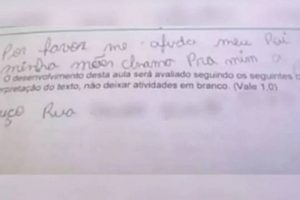 Por favor me ajuda meu Pai
minha mães chamo Pra mim a
O desenvolvimento desta aula será avaliado seguindo os seguintes c
erpretação do texto, não deixar atividades em branco. (Vale 1,0)
uço Rua